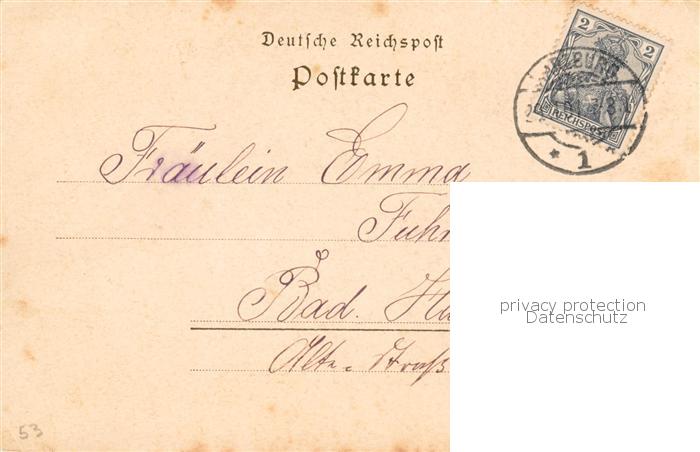 Deutsche Reichspost
Postkarte
2 2
REICHSPOST
* 1
Fräulein Emma
Fuhr
Bad. Ha
Alte-Straß
privacy protection
Datenschutz
53